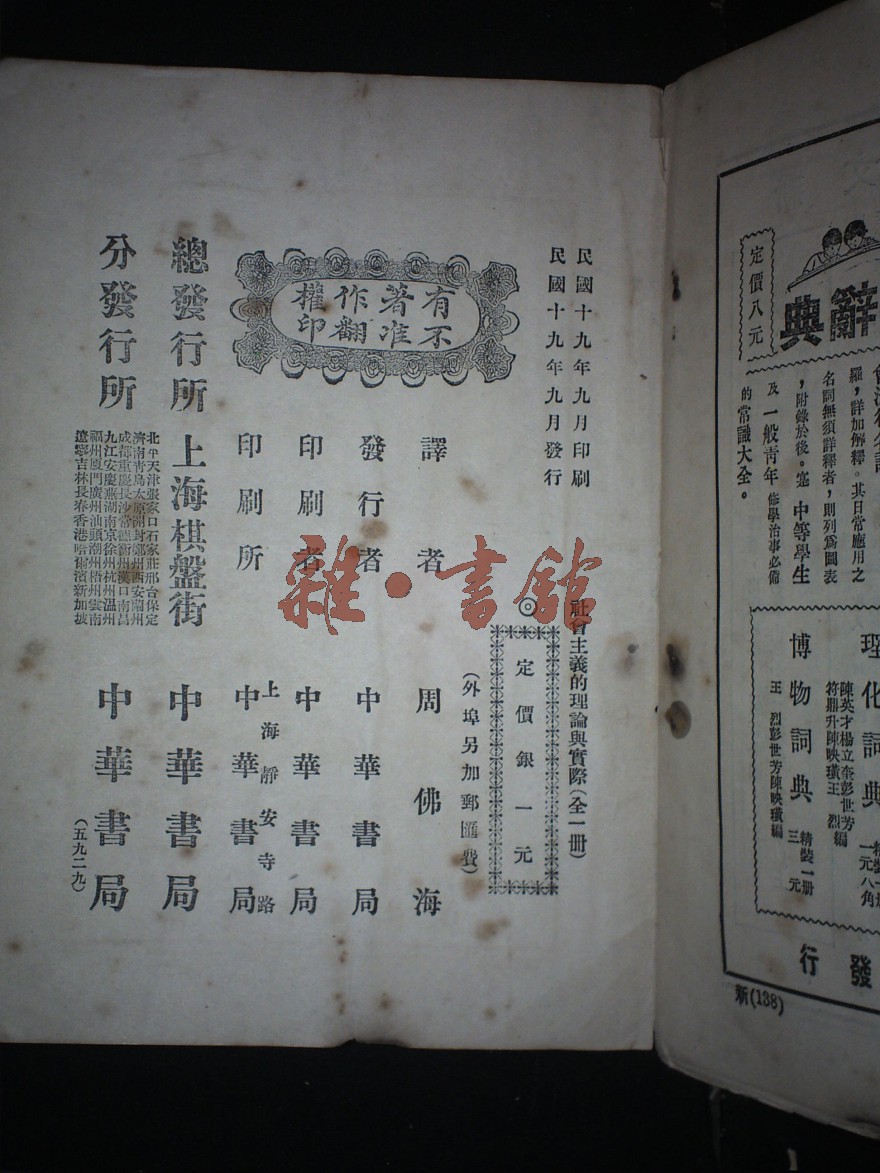 民國十九年九月印刷
民國十九年九月發行
有著作權
不准翻印
社會主義的理論與實際(全一册)
◎定價銀一元
(外埠另加郵匯費)
譯者 周佛海
發行者 中華書局
印刷者 中華書局
印刷所 上海靜安寺路 中華書局
總發行所 上海棋盤街 中華書局
分發行所 中華書局
北平天津張家口石家莊邢台保定
濟南青島太原開封鄭州西安蘭州
成都重慶長沙常德衡州漢口南昌
九江安慶蕪湖南京徐州杭州温州
福州厦門廣州汕頭潮州梧州雲南
遼寧吉林長春香港哈爾濱新加坡
(五九二九)
雜·書館
辭典
定價八元
羅,詳加解釋。其日常應用之
名詞無須詳釋者,則列爲圖表
,附錄於後。寔中等學生
及一般靑年修學治事必備
的常識大全。
理化詞典
陳英才楊立奎彭世芳
符鼎升陳映璜王烈編
一元八角
博物詞典
王烈彭世芳陳映璜編
精裝一册
三元
發行
新(138)